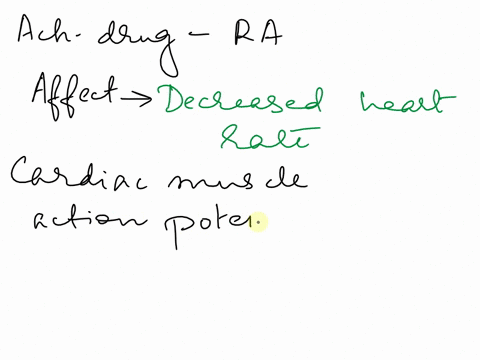 Ach. drug - RA
Affect → Decreased heart
rate
Cardiac muscle
action poten